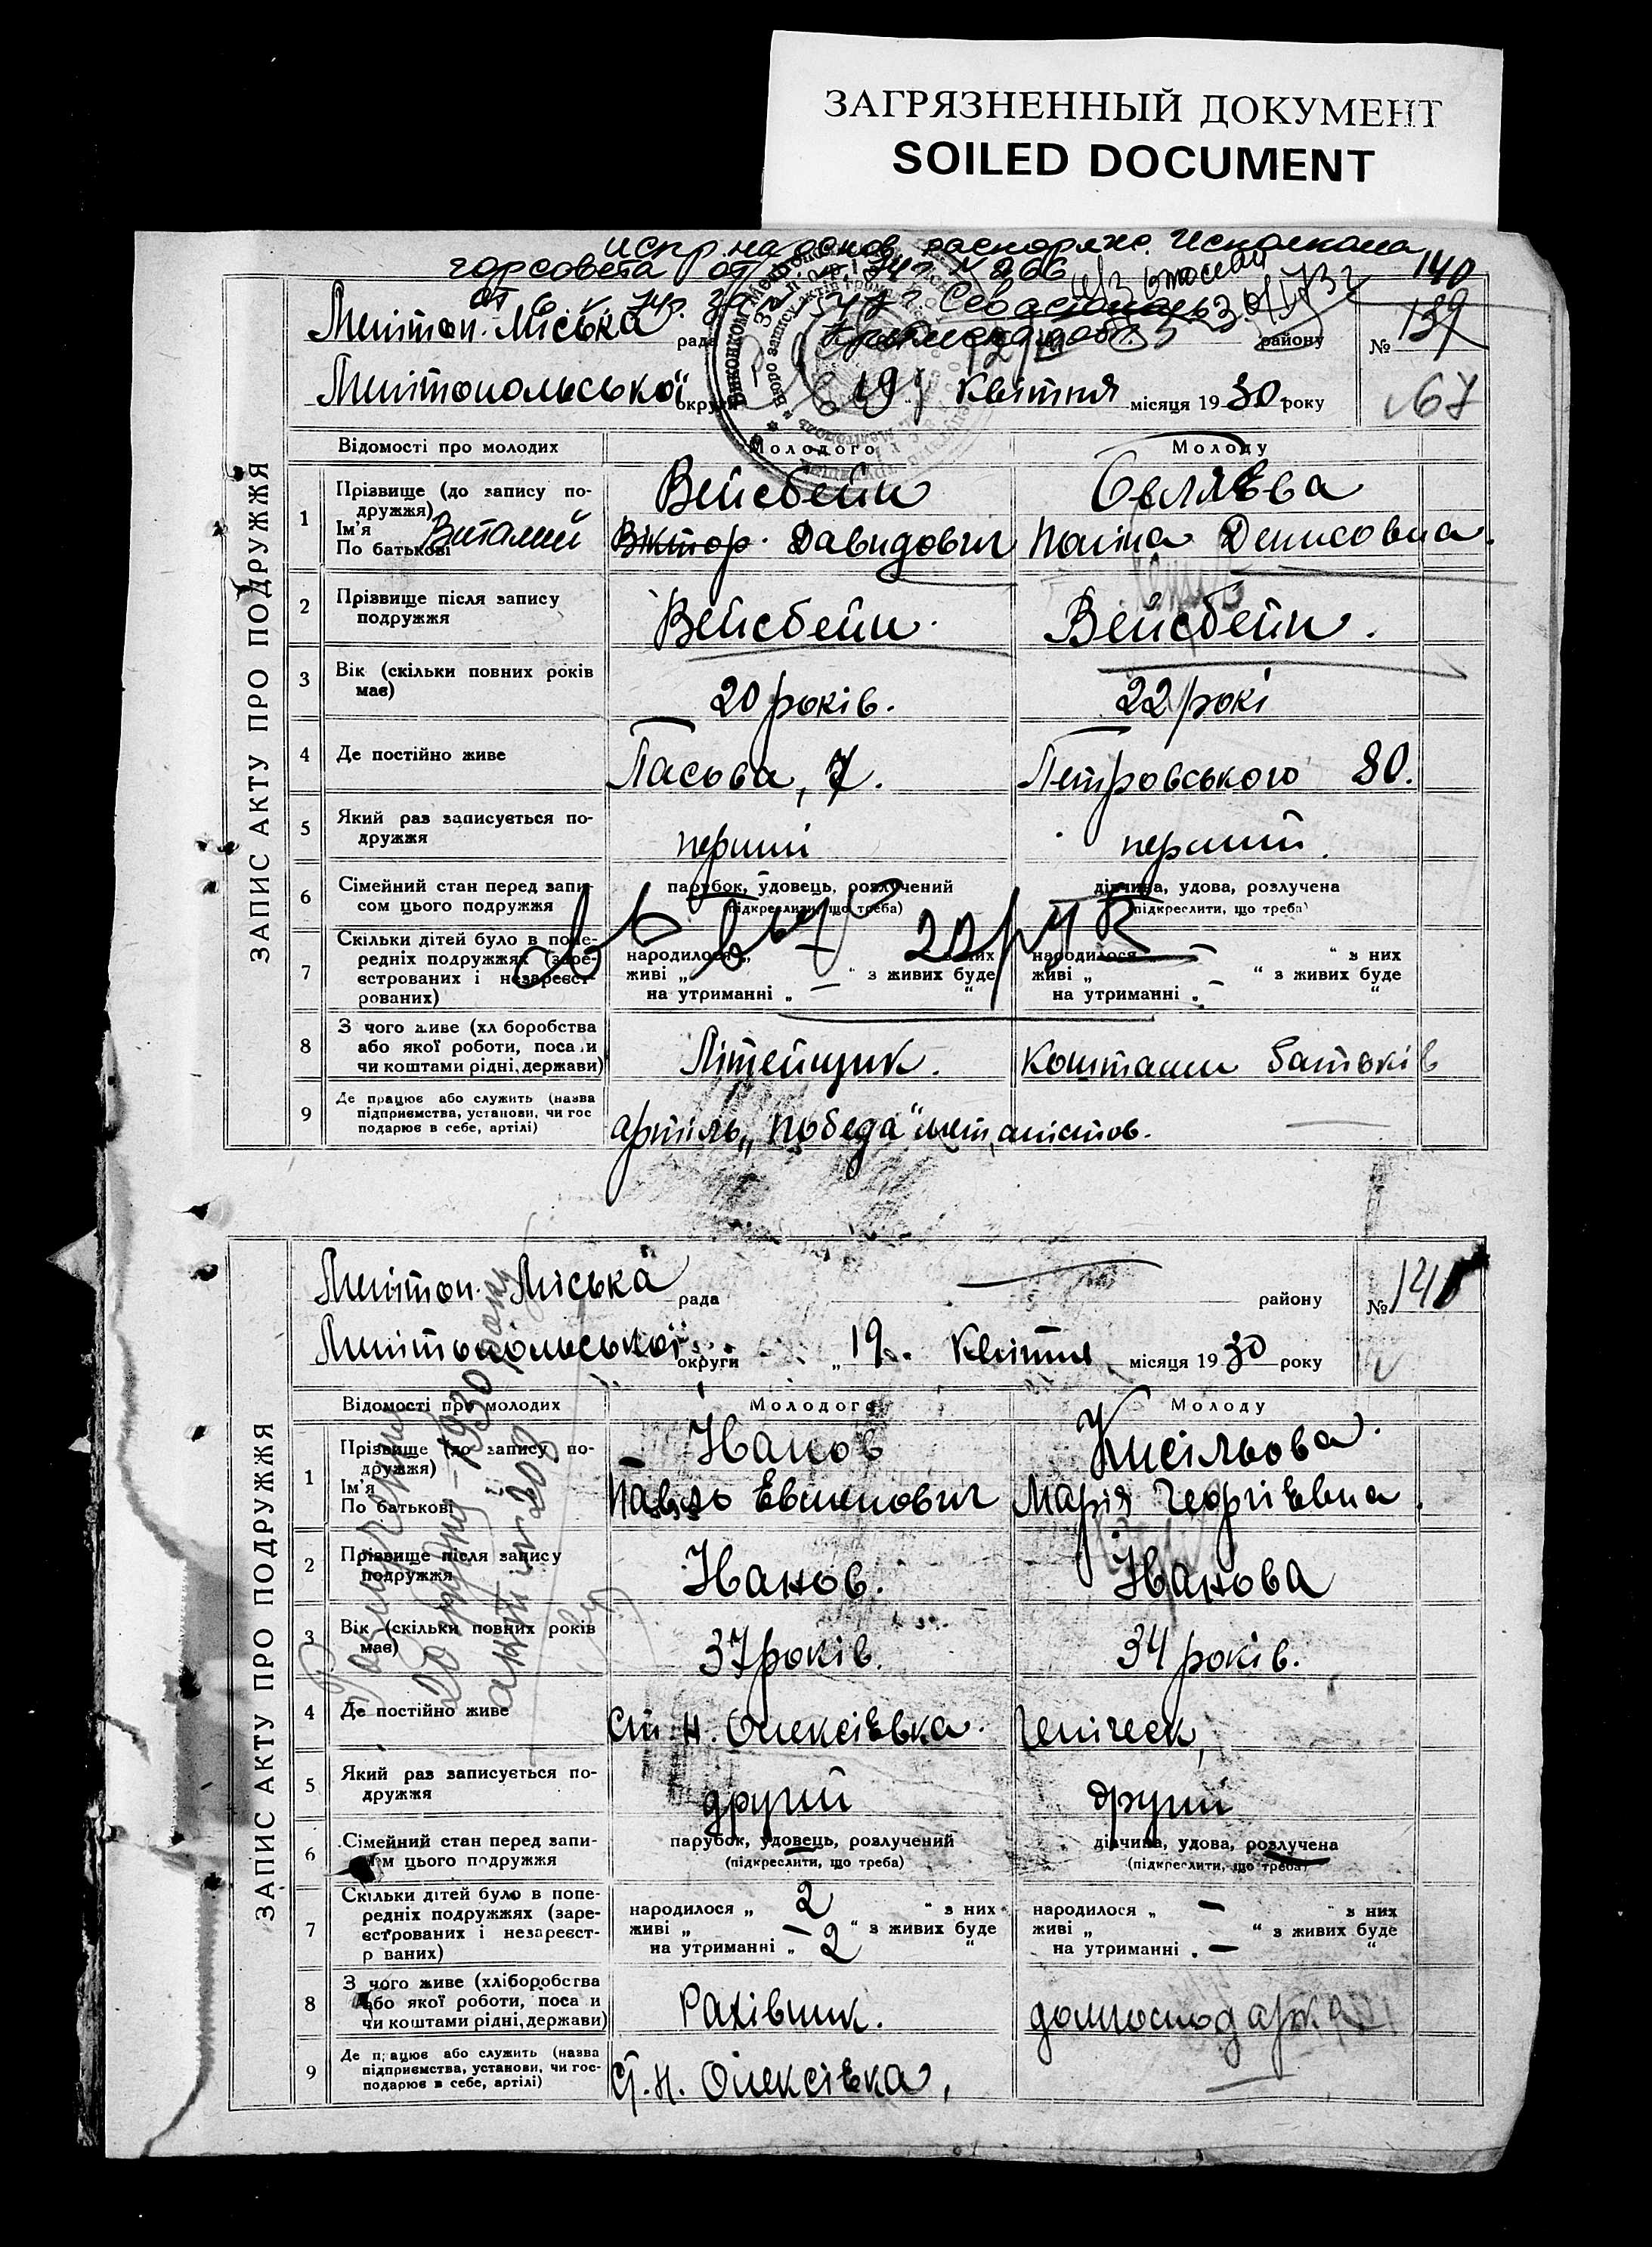 ЗАГРЯЗНЕННЫЙ ДОКУМЕНТ
SOILED DOCUMENT
испр. на основ. распоряж. Исполкома
горсовета от № 866
140
139
Мелітоп. Міська рада району №
67
Мелітопольської округи 19 квітня місяця 1930 року
ЗАПИС АКТУ ПРО ПОДРУЖЖЯ
Відомості про молодих Молодого Молоду
1 Прізвище (до запису подружжя) Вейсбейн Беляєва
Ім'я По батькові Виталий Віктор Давидович Поліна Денисовна.
2 Прізвище після запису подружжя Вейсбейн. Вейсбейн.
3 Вік (скільки повних років має) 20 років. 22 рокі
4 Де постійно живе Пасова, 7. Петровського 80.
5 Який раз записується подружжя перший перший.
6 Сімейний стан перед записом цього подружжя парубок, удовець, розлучений (підкреслити, що треба) дівчина, удова, розлучена (підкреслити, що треба)
7 Скільки дітей було в попередніх подружжях (зареєстрованих і незареєстрованих) народилося „ — “ з них живі „ “ з живих буде на утриманні „ — “ народилося „ — “ з них живі „ “ з живих буде на утриманні „ — “
8 З чого живе (хліборобства або якої роботи, посади чи коштами рідні, держави) Літейщик. Коштами батьків
9 Де працює або служить (назва підприємства, установи, чи господарює в себе, артілі) артіль „Победа" металістов. —
ЗАПИС АКТУ ПРО ПОДРУЖЖЯ
Мелітоп. Міська рада — району № 140
Мелітопольської округи „ 19. квітня місяця 1930 року
Відомості про молодих Молодого Молоду
1 Прізвище (до запису подружжя) Іванов Кисільова.
Ім'я По батькові Павло Евменович Марія Георгієвна.
2 Прізвище після запису подружжя Іванов. Іванова
3 Вік (скільки повних років має) 37 років. 34 років.
4 Де постійно живе ст. Н. Олексіївка. Генічеськ,
5 Який раз записується подружжя другий другий
6 Сімейний стан перед записом цього подружжя парубок, удовець, розлучений (підкреслити, що треба) дівчина, удова, розлучена (підкреслити, що треба)
7 Скільки дітей було в попередніх подружжях (зареєстрованих і незареєстрованих) народилося „ 2 “ з них живі „ — “ з живих буде на утриманні „ 2 “ народилося „ — “ з них живі „ “ з живих буде на утриманні „ — “
8 З чого живе (хліборобства або якої роботи, посади чи коштами рідні, держави) Рахівник. домгосподарка
9 Де працює або служить (назва підприємства, установи, чи господарює в себе, артілі) ст. Н. Олексіївка, —